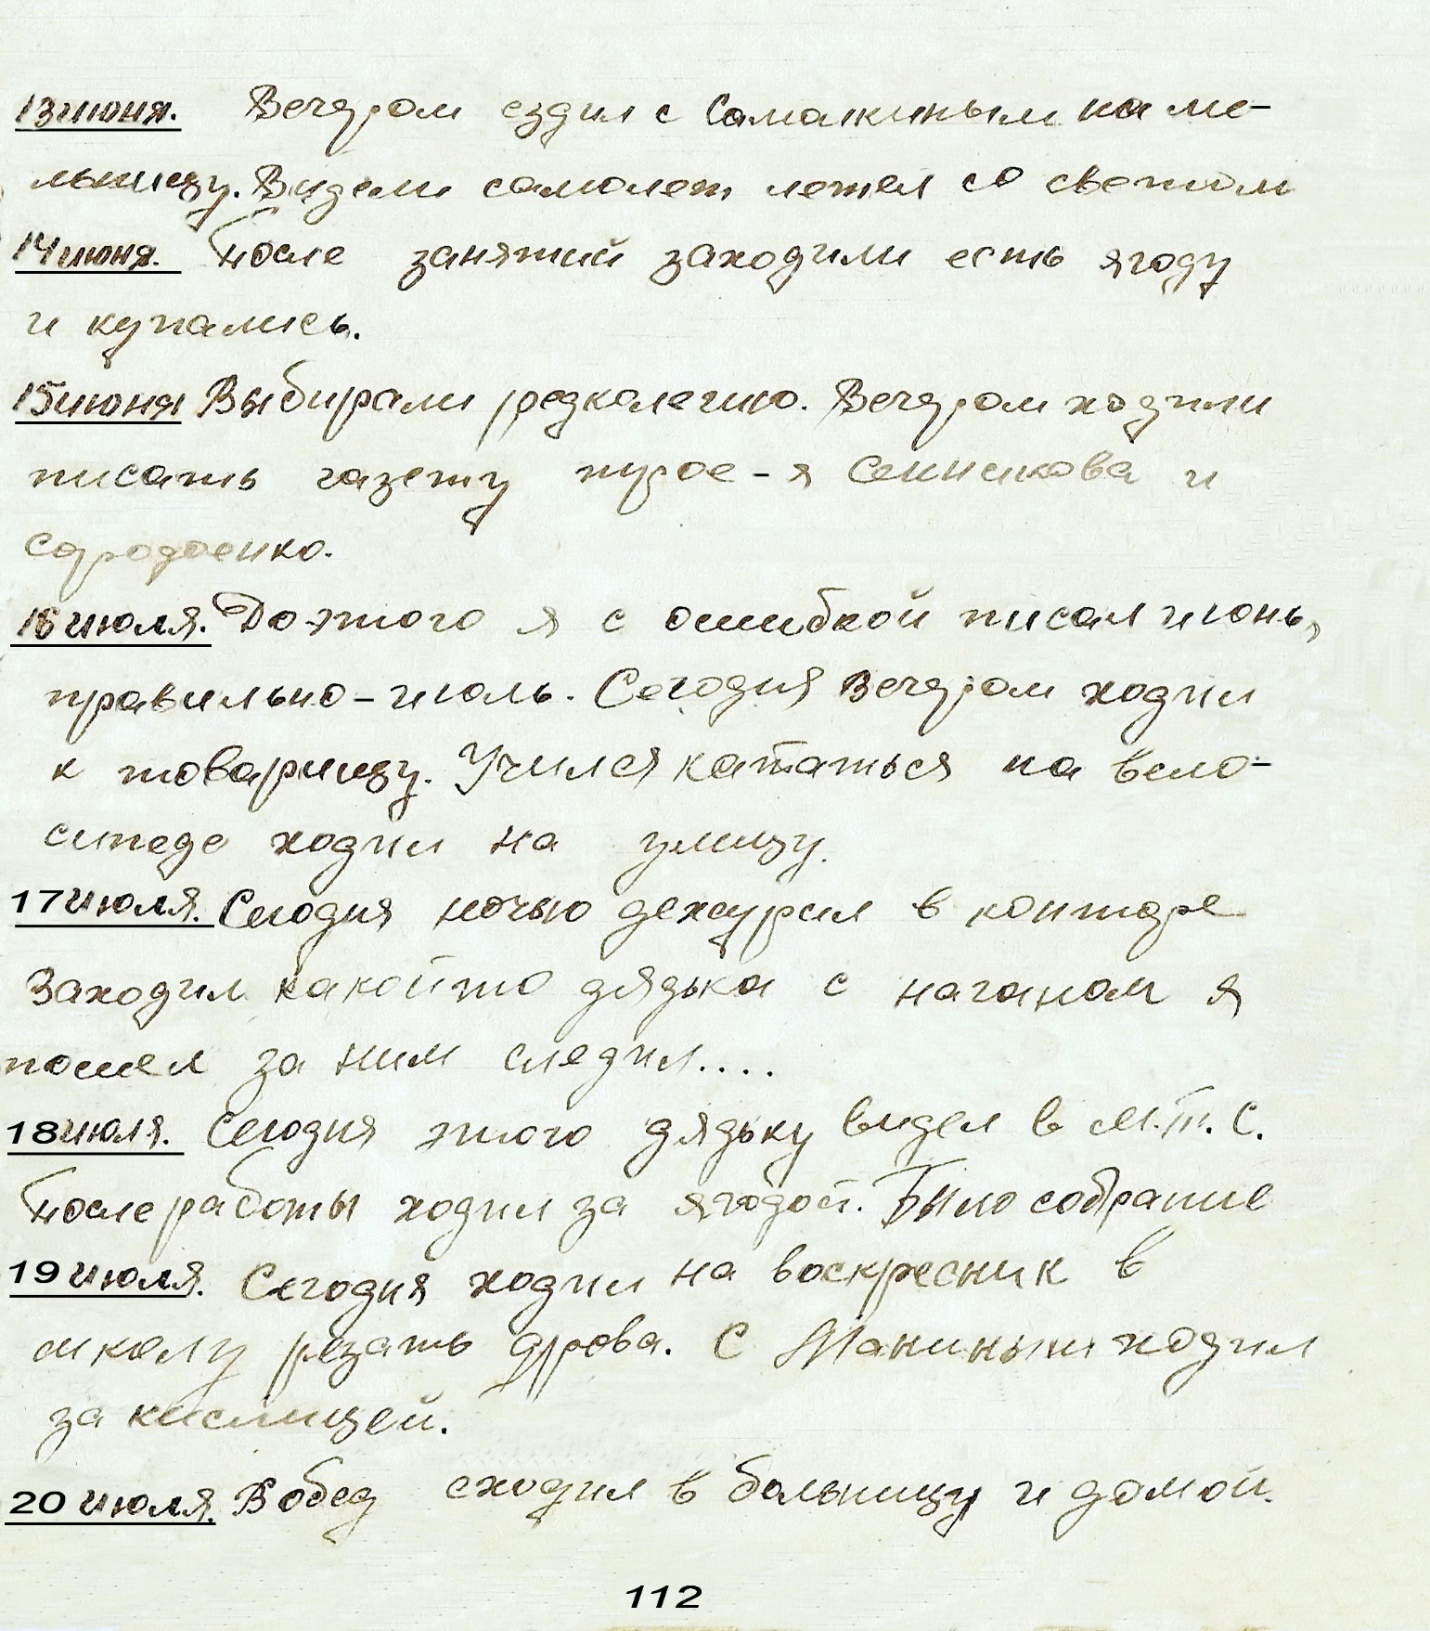 13 июня. Вечером ездил с Самалкиным на ме-
льницу. Видели самолет летел со светом
14 июня. После занятий заходили есть ягоду
и купались.
15 июня Выбирали редколегию. Вечером ходили
писать газету трое - я Сенникова и
16 июля. До этого я с ошибкой писал июнь,
правильно - июль. Сегодня вечером ходил
к товарищу. Учился кататься на вело-
сипеде ходил на улицу.
17 июля. Сегодня ночью дежурил в конторе
Заходил какой то дядька с наганом я
пошел за ним следил....
18 июля. Сегодня этого дядьку видел в М.Т.С.
После работы ходил за ягодой. Было собрание
19 июля. Сегодня ходил на воскресник в
школу резать дрова. С Маниным ходил
за кислицей.
20 июля. В обед сходил в больницу и домой.
112